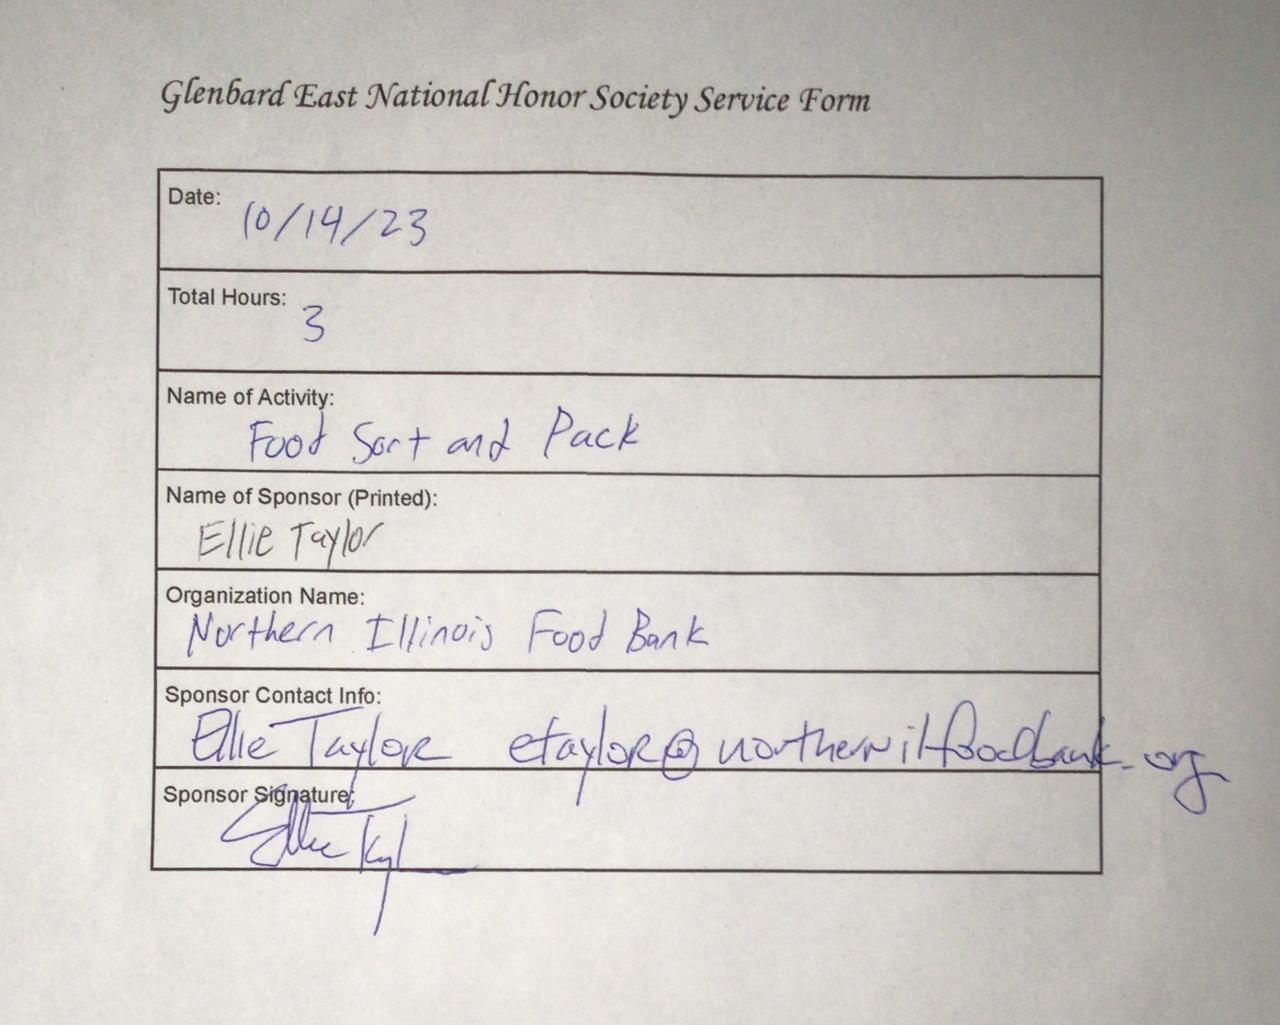 Glenbard East National Honor Society Service Form
Date:
10/14/23
Total Hours:
3
Name of Activity:
Food Sort and Pack
Name of Sponsor (Printed):
Ellie Taylor
Organization Name:
Northern Illinois Food Bank
Sponsor Contact Info:
Ellie Taylor etaylor@northernilfoodbank.org
Sponsor Signature:
Ellie Tayl